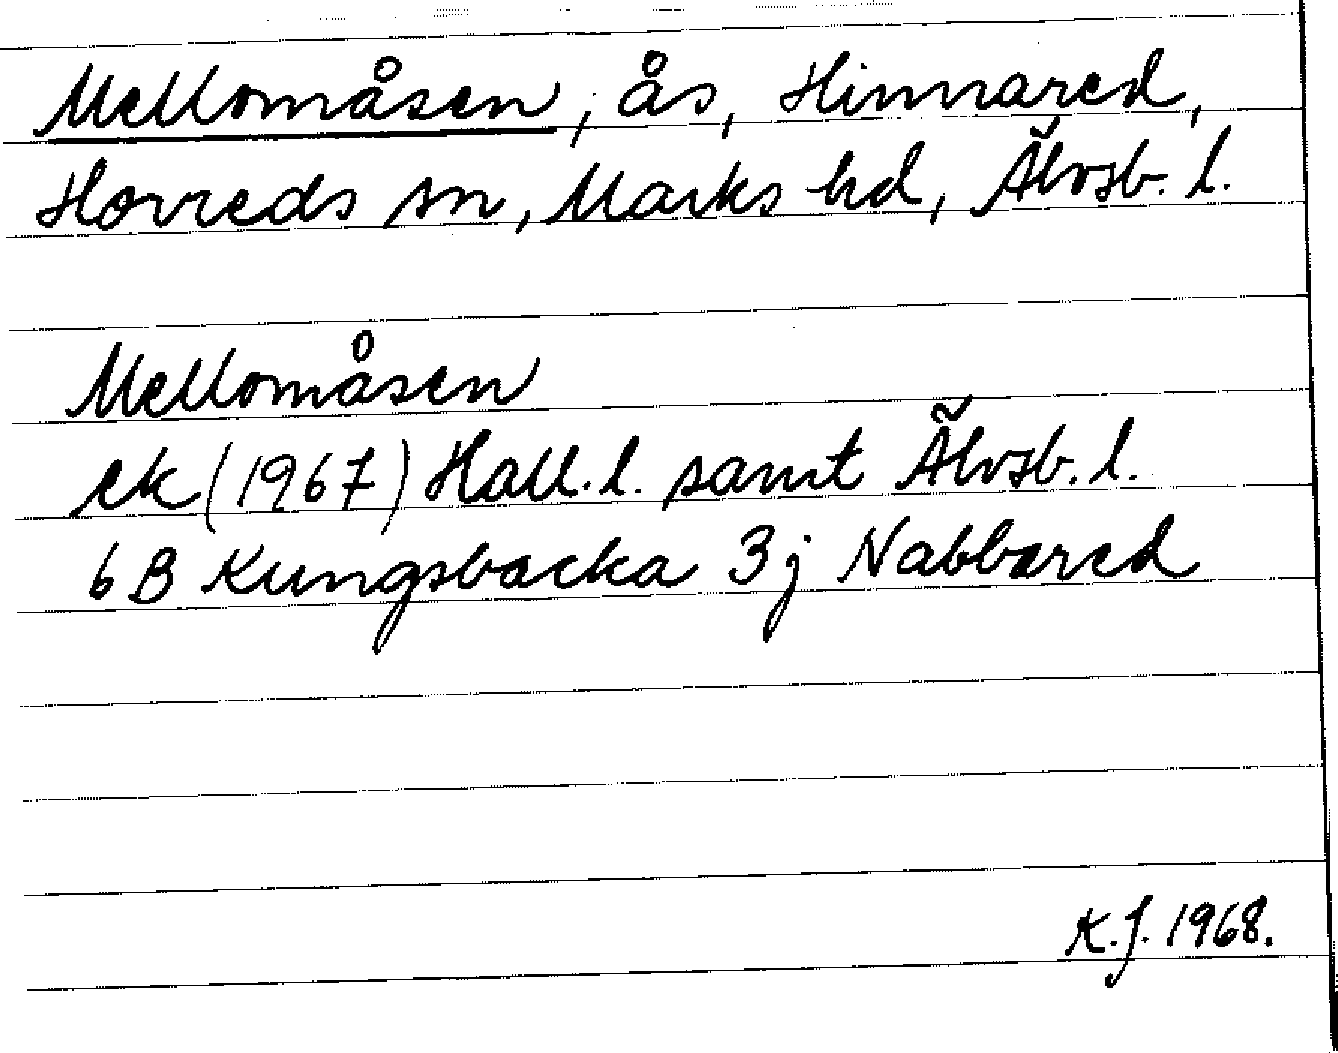 Mellomåsen, ås, Hinnared,
Horreds sn, Marks hd, Älvsb. l.
Mellomåsen
ek (1967) Hall. l. samt Älvsb. l.
6 B Kungsbacka 3j Nabbared
K.J. 1968.